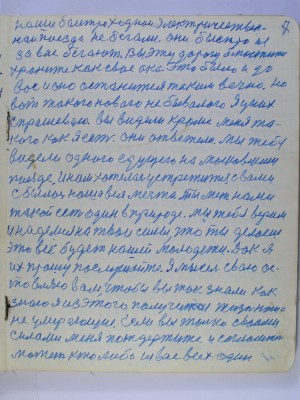 наши быстроходные электрические
поезда не бегали. они быстро из
за вас бегают. Вы эту дорогу
храните как свое око. Это было и до
вас и оно останется таким вечно. Но
вот такого нового не бывалого я у них
спрашиваю. Вы видели кроме меня та-
кого как я есть. они ответили. Мы тебя
видели одного едущего на московским
поезде. И нам хотелось встретится с вами
сбылась наша вся мечта. Ты между нами
такой есть один в природе. мы тебе верим
и надеимся на твои силы это ты делаеш
это всё будет нашей молодежи. Вот я
их прошу послушайте. Я мысль свою ос-
тавляю вам чтобы вы так знали как
знаю я из этого получится жизнь
не умерающие. Если вы только своими
силами меня поддержите и согласитесь
может кто либо из вас всех один
7